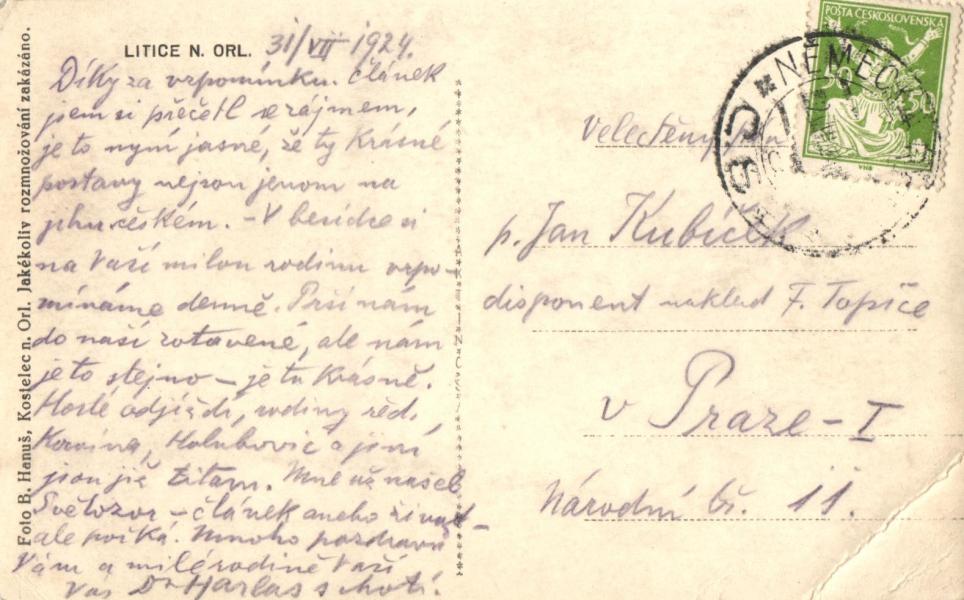 LITICE N. ORL. 31/VII 1924.
Díky za vzpomínku. Článek
jsem si přečetl se zájmem,
je to nyní jasné, že ty krásné
postavy nejsou jenom na
českém. – V besídce si
na Vaší milou rodinu vzpo-
mínáme denně. Prší nám
do naší zotavené, ale nám
je to stejno – je tu krásně.
Hosté odjíždí, rodiny řed.
Holubovic a jiní
jsou již tytam. Mne už našel
Světozor – článek aneho
ale počká. Mnoho pozdravů
Vám a milé rodině Vaší
Váš Dr Harlas s chotí.
Foto B. Hanuš, Kostelec n. Orl. Jakékoliv rozmnožování zakázáno.
POŠTA ČESKOSLOVENSKÁ
50 50
NĚMEC
Velectěný pán
p. Jan Kubíček
disponent naklad F. Topiče
v Praze – I
Národní tř. 11.